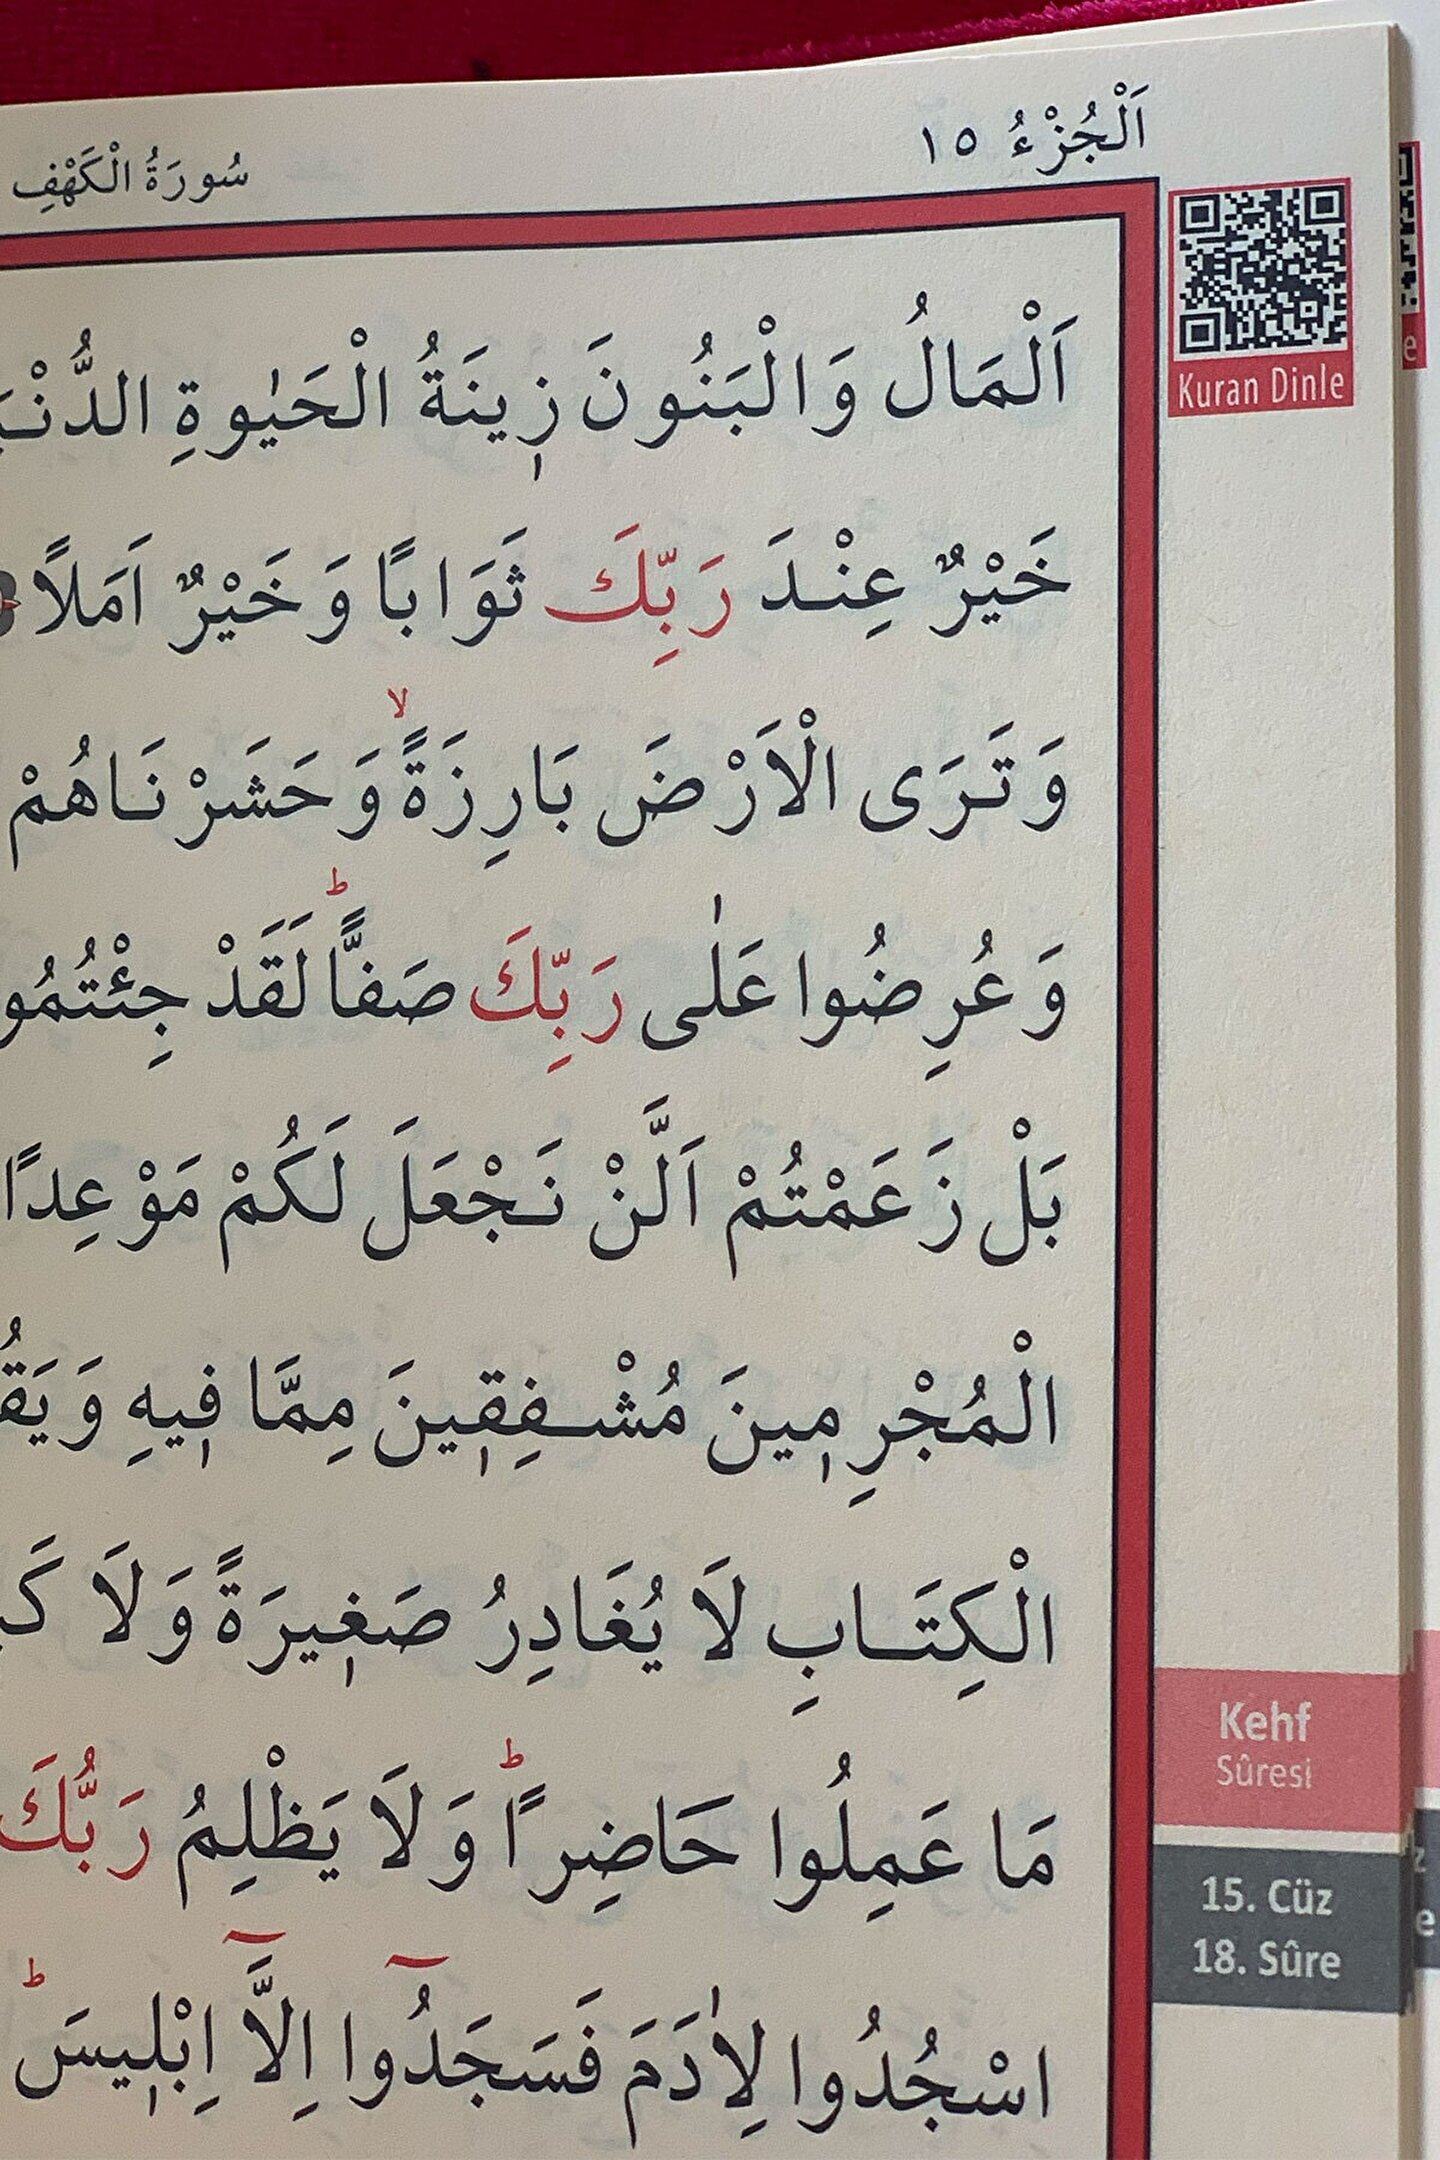 اَلْجُزْءُ ١٥
سُورَةُ الْكَهْفِ
Kuran Dinle
اَلْمَالُ وَالْبَنُونَ ز۪ينَةُ الْحَيٰوةِ
خَيْرٌ عِنْدَ رَبِّكَ ثَوَابًا وَخَيْرٌ اَمَلًا
وَتَرَى الْاَرْضَ بَارِزَةًۙ وَحَشَرْنَاهُمْ
وَعُرِضُوا عَلٰى رَبِّكَ صَفًّاۜ لَقَدْ
بَلْ زَعَمْتُمْ اَلَّنْ نَجْعَلَ لَكُمْ مَوْعِدًا
الْمُجْرِم۪ينَ مُشْفِق۪ينَ مِمَّا ف۪يهِ
الْكِتَابِ لَا يُغَادِرُ صَغ۪يرَةً وَلَا
مَا عَمِلُوا حَاضِرًاۜ وَلَا يَظْلِمُ رَبُّكَ
اسْجُدُوا لِاٰدَمَ فَسَجَدُٓوا اِلَّٓا اِبْل۪يسَۜ
Kehf
Sûresi
15. Cüz
18. Sûre